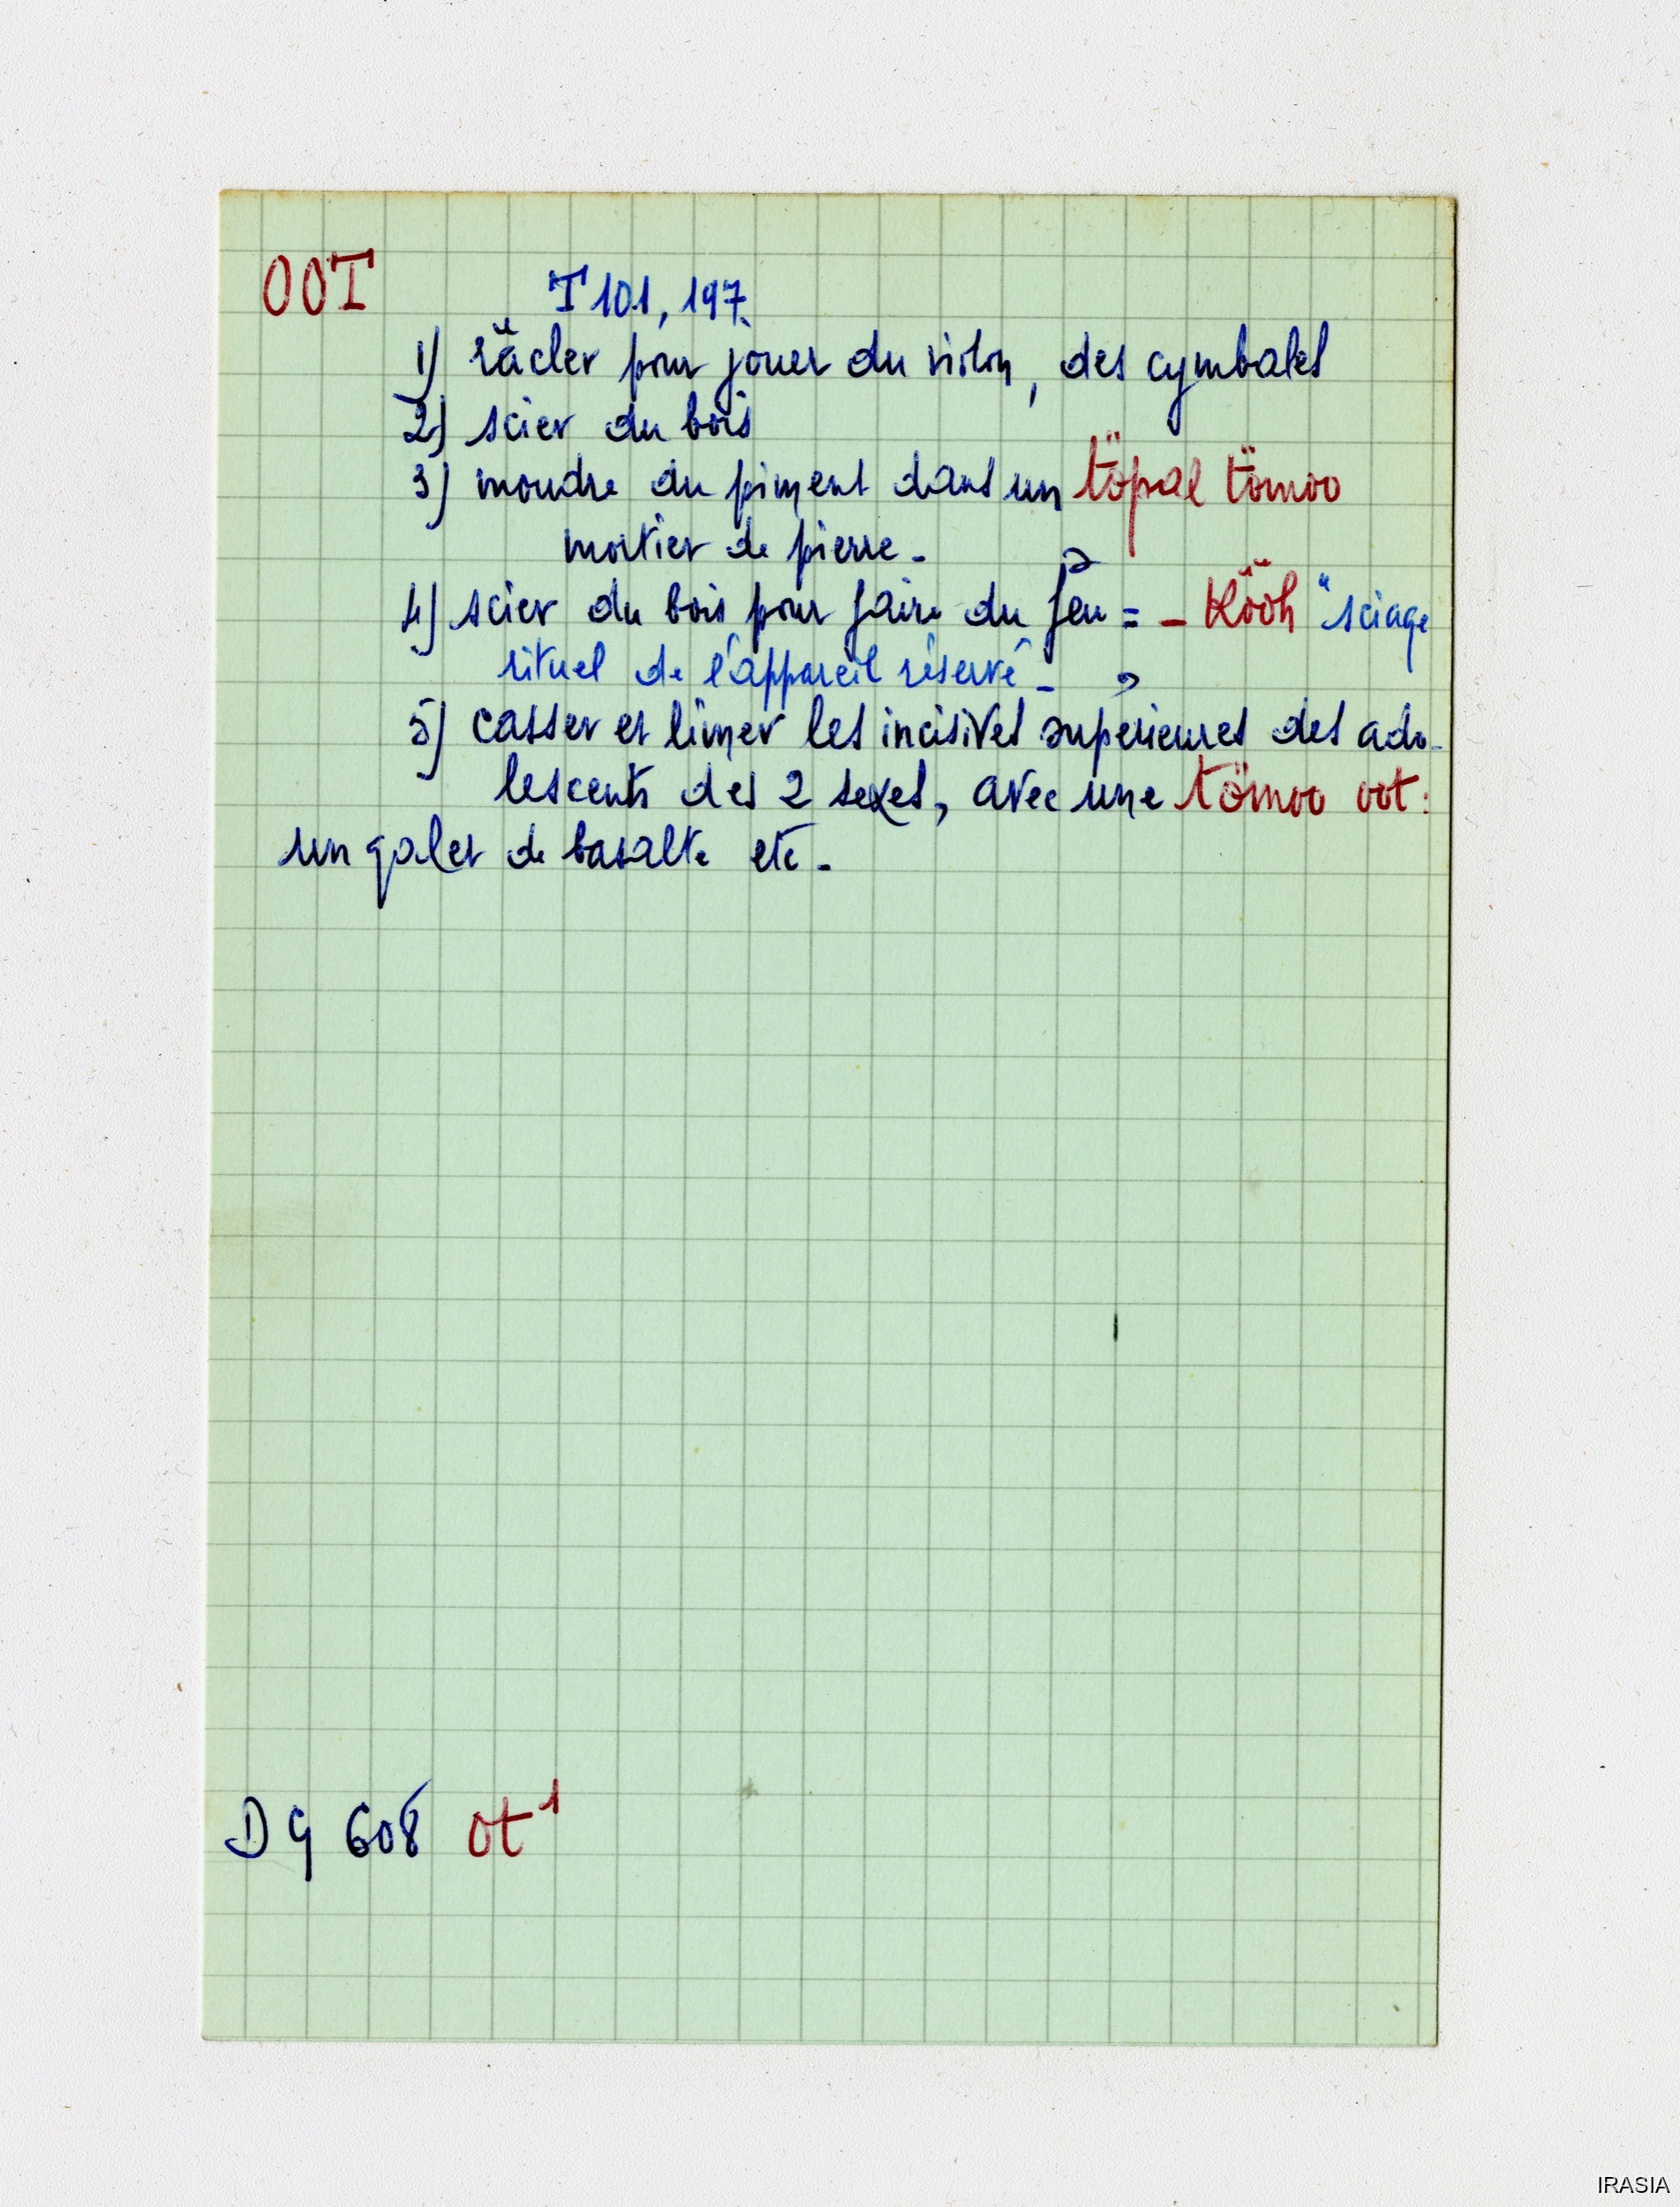 OOT T 101, 197.
1) răcler pour jouer du violon, des cymbales
2) scier du bois
3) moudre du piment dans un töpal tömoo
mortier de pierre -
4) scier du bois pour faire du feu = - Kööh "sciage
rituel de l'appareil réservé - "
5) casser et limer les incisives supérieures des ado-
lescents des 2 sexes, avec une tömoo oot :
un galet de basalte etc -
DG 608 ot¹
IRASIA